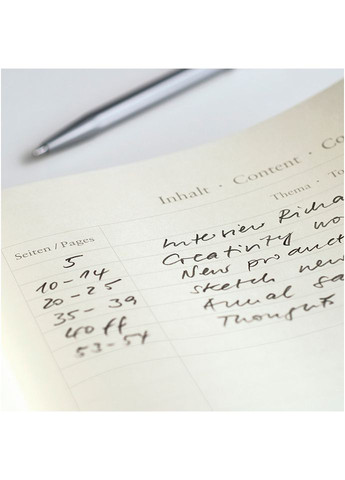 Inhalt · Content · Co
Seiten / Pages Thema · To
5 Interview Richa
10 - 14 Creativity wo
20 - 25 New product
35 - 39 sketch new
40 ff Annual sa
53 - 54 Thoughts